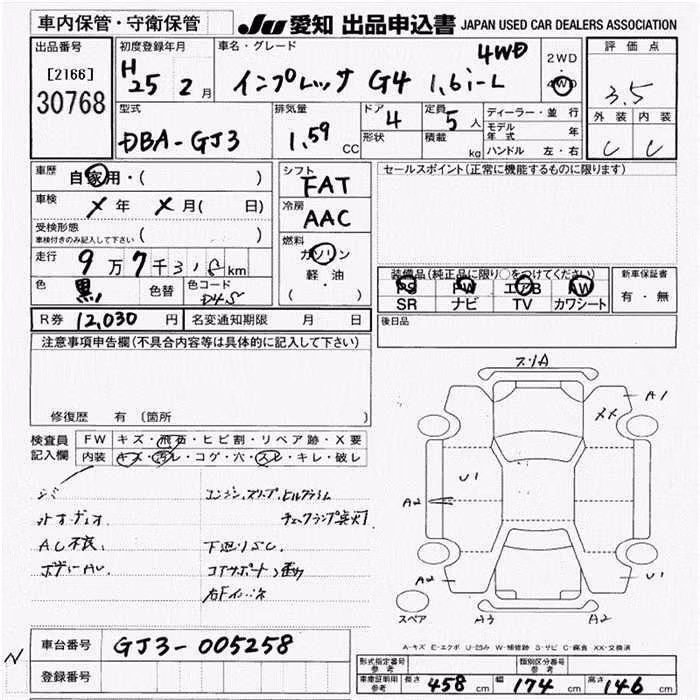 車内保管・守衛保管
JU 愛知 出品申込書 JAPAN USED CAR DEALERS ASSOCIATION
出品番号
[2166]
30768
初度登録年月
H 25 2月
車名・グレード
インプレッサ G4 1.6i-L 4WD
2WD
・
4WD
評価点
3.5
外装 内装
C C
型式
DBA-GJ3
排気量
1.59 CC
ドア 4
形状
定員 5人
積載 kg
ディーラー・並行
モデル年式 年
ハンドル 左・右
車歴
自家用・( )
車検
メ年 メ月( 日)
受検形態
車検付きのみ記入して下さい ( )
走行
9万7千318km
色 黒 色替 色コード D4S
シフト
FAT
冷房
AAC
燃料
ガソリン
軽・油
( ・ )
セールスポイント(正常に機能するものに限ります)
装備品(純正品に限り○をつけてください)
PS PW エアB AW
SR ナビ TV カワシート
新車保証書
有・無
後日品
R券 12,030円 名変通知期限 月 日
注意事項申告欄(不具合内容等は具体的に記入して下さい)
修復歴 有 (箇所 )
検査員
記入欄
FW キズ・飛石・ヒビ割・リペア跡・X要
内装 キズ・汚レ・コゲ・穴・スレ・キレ・破レ
シミ
AC不良
下廻りSC.
スリA
A1
XX
U1
A2
A2
U1
A3
A2
スペア
A-キズ E-エクボ U-凹み W-補修跡 S-サビ C-腐食 XX-交換済
車台番号 GJ3-005258
登録番号
N
型式指定番号
参考
類別区分番号
参考
車庫証明用
参考
長さ 458cm 幅 174cm 高さ 146cm